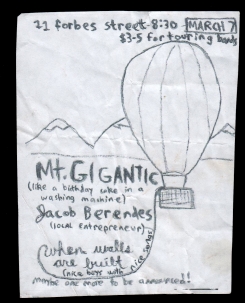 21 forbes street 8:30 MARCH 7
$3-5 for touring bands
Mt. GIGANTIC
(like a birthday cake in a
washing machine)
Jacob Berendes
(local entrepreneur)
when walls
are built
(nice boys with nice songs)
maybe one more to be announced!!